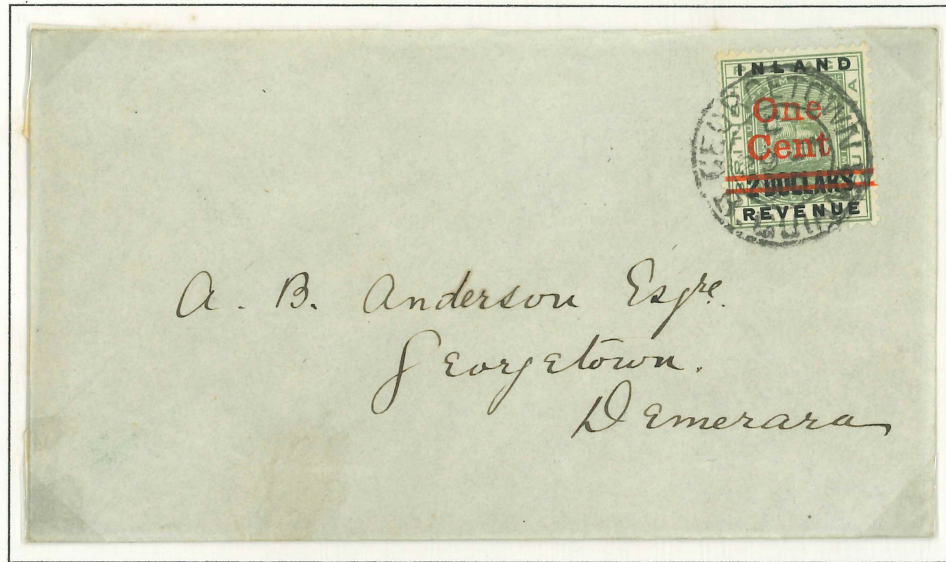 INLAND
One
Cent
2 DOLLARS
REVENUE
GEORGETOWN
A. B. Anderson Esqre.
Georgetown.
Demerara